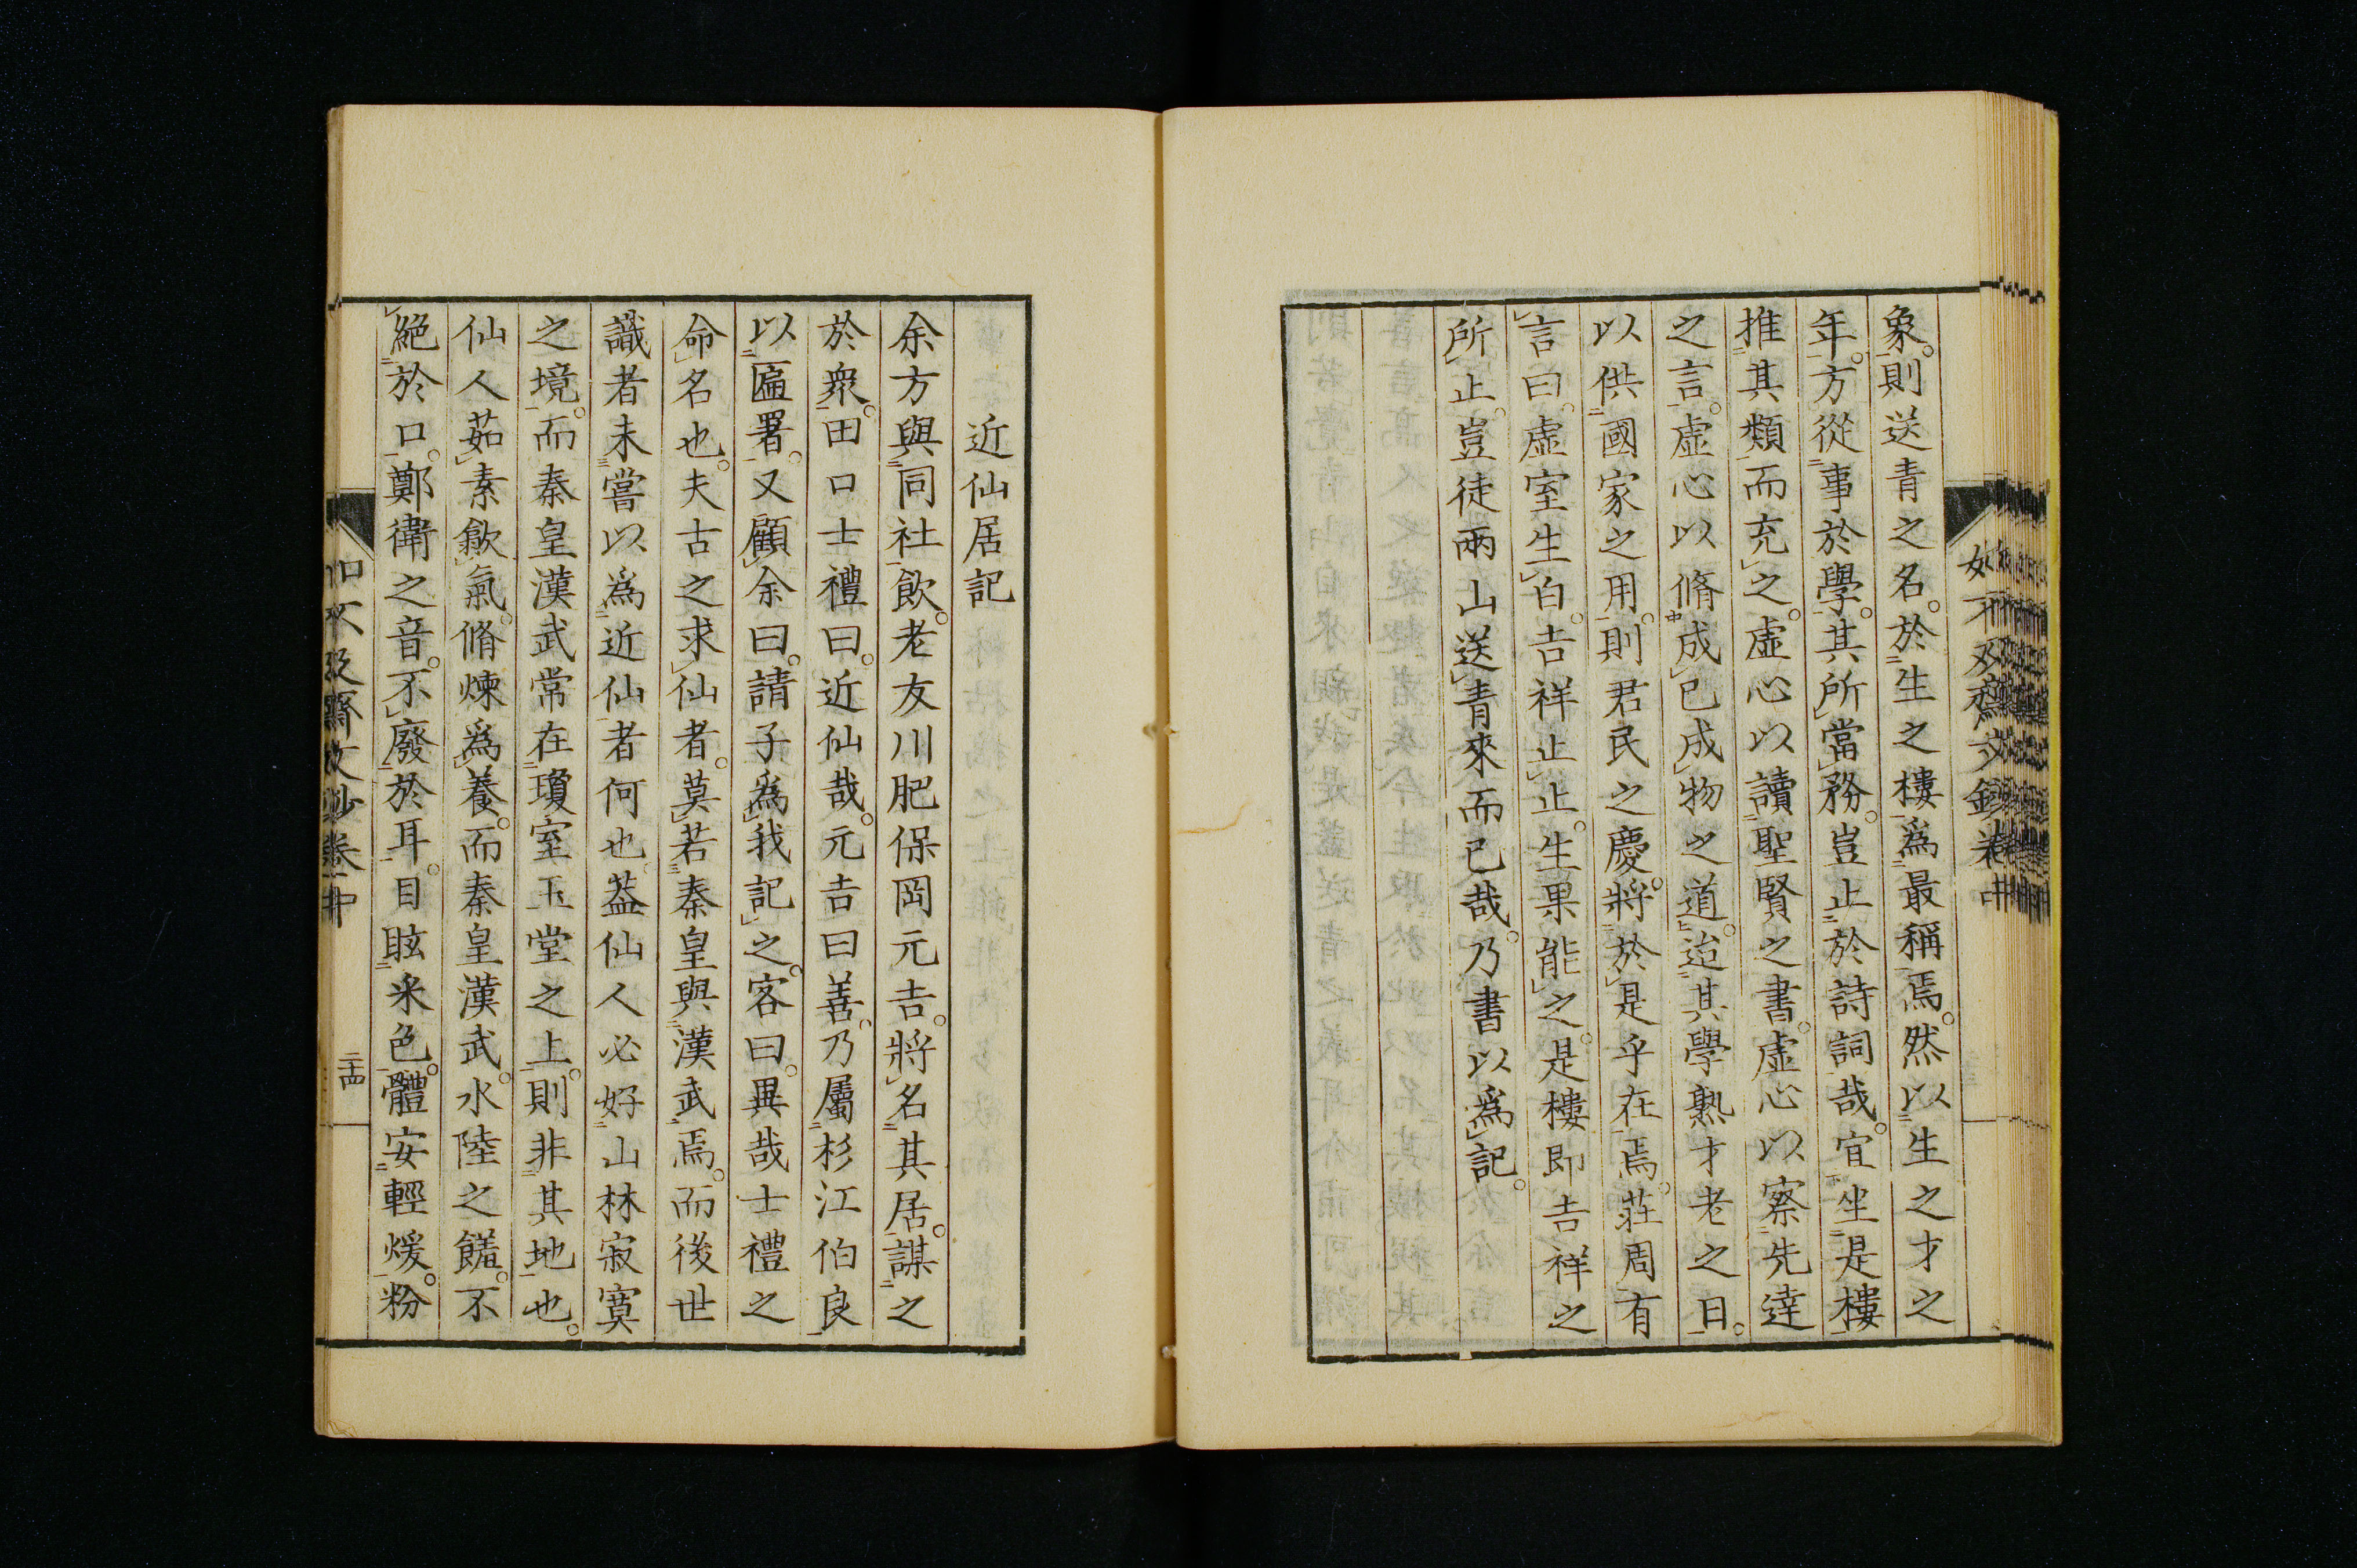 象。則送青之名。於生之樓爲最稱焉。然以生之才之
年。方從事於學。其所當務。豈止於詩詞哉。宜坐是樓
推其類而充之。虛心以讀聖賢之書。虛心以察先達
之言。虛心以脩成已成物之道。迨其學熟才老之日。
以供國家之用。則君民之慶。將於是乎在焉。莊周有
言曰。虛室生白。吉祥止止。生果能之。是樓即吉祥之
所止。豈徒兩山送青來而已哉。乃書以爲記。
近仙居記
余方與同社飲。老友川肥保岡元吉。將名其居。謀之
於衆。田口士禮曰。近仙哉。元吉曰善。乃屬杉江伯良
以匾署。又顧余曰。請子爲我記之。客曰。異哉士禮之
命名也。夫古之求仙者。莫若秦皇與漢武焉。而後世
識者未嘗以爲近仙者何也。葢仙人必好山林寂寞
之境。而秦皇漢武常在瓊室玉堂之上。則非其地也。
仙人茹素歠氣。脩煉爲養。而秦皇漢武。水陸之饍。不
絕於口。鄭衛之音。不廢於耳。目眩釆色。體安輕煖。粉
如不及齋文鈔卷中
二十四